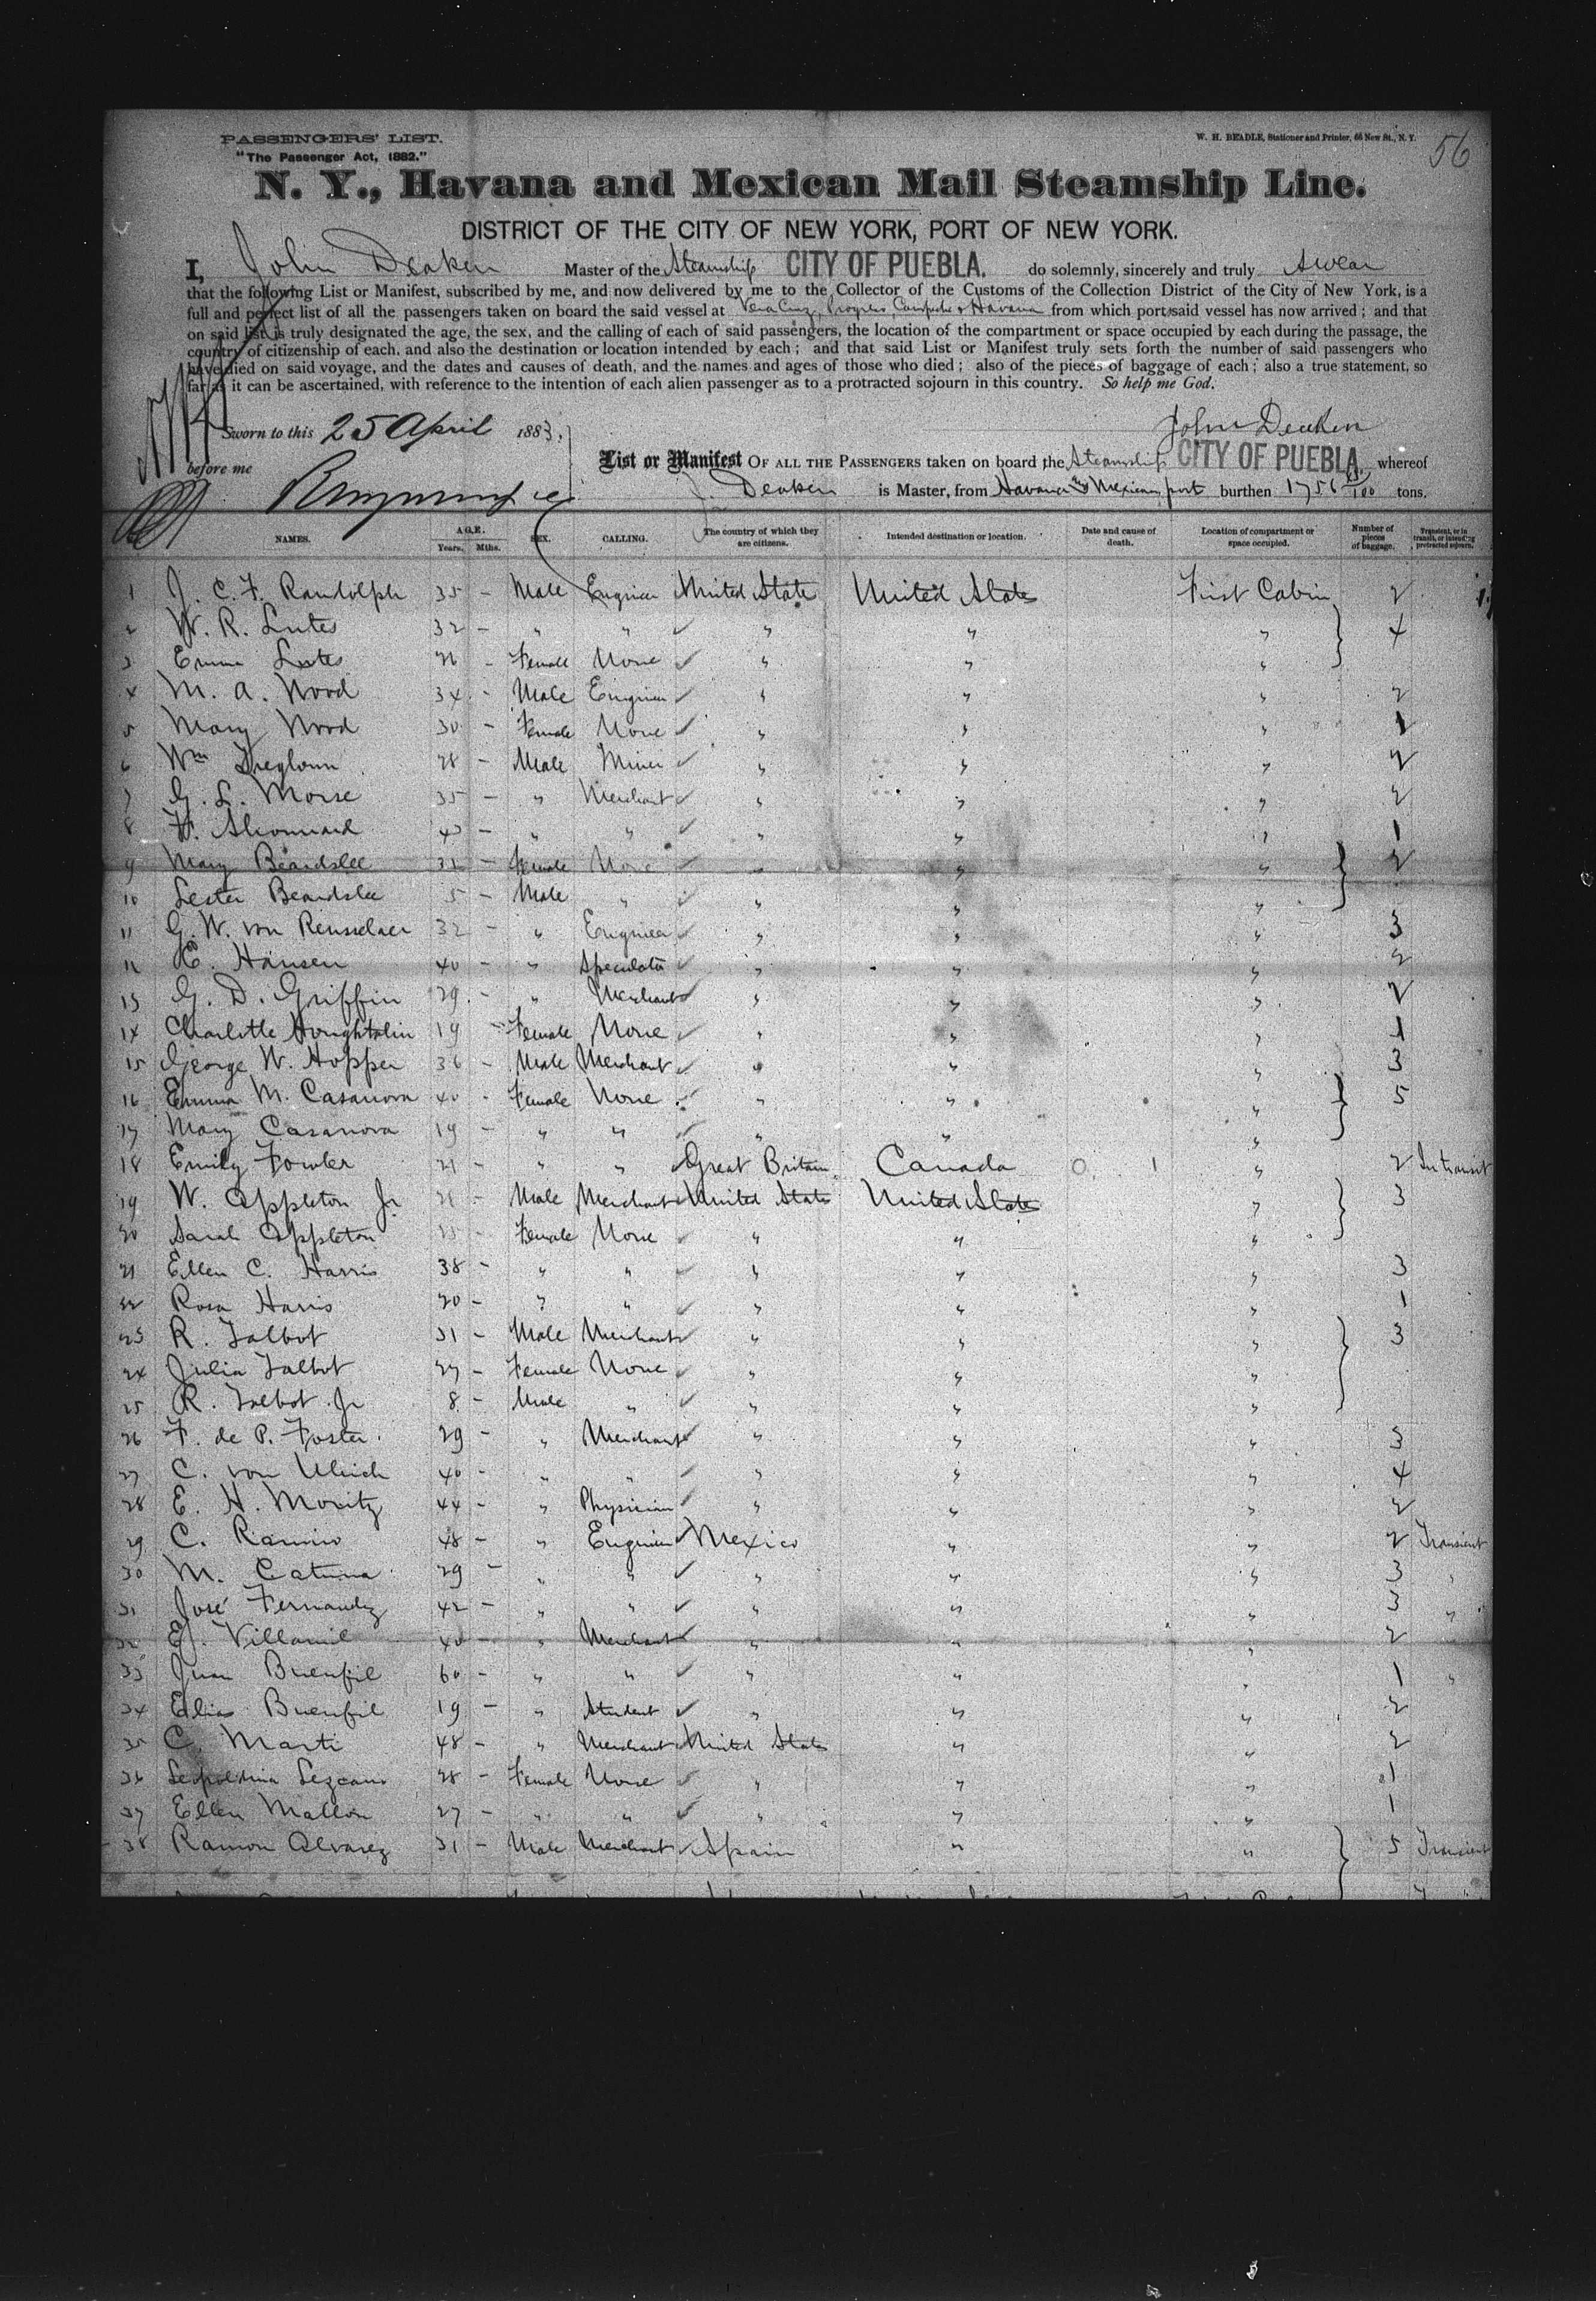 PASSENGERS' LIST.
"The Passenger Act, 1882."
W. H. BEADLE, Stationer and Printer, 66 New St., N. Y.
56
N. Y., Havana and Mexican Mail Steamship Line.
DISTRICT OF THE CITY OF NEW YORK, PORT OF NEW YORK.
I, John Deaken Master of the Steamship CITY OF PUEBLA. do solemnly, sincerely and truly Swear
that the following List or Manifest, subscribed by me, and now delivered by me to the Collector of the Customs of the Collection District of the City of New York, is a
full and perfect list of all the passengers taken on board the said vessel at Vera Cruz, Progreso, Campeche & Havana from which port said vessel has now arrived; and that
on said list is truly designated the age, the sex, and the calling of each of said passengers, the location of the compartment or space occupied by each during the passage, the
country of citizenship of each, and also the destination or location intended by each; and that said List or Manifest truly sets forth the number of said passengers who
have died on said voyage, and the dates and causes of death, and the names and ages of those who died; also of the pieces of baggage of each; also a true statement, so
far as it can be ascertained, with reference to the intention of each alien passenger as to a protracted sojourn in this country. So help me God.
John Deaken
Sworn to this 25 April 1883,
before me
List or Manifest OF ALL THE PASSENGERS taken on board the Steamship CITY OF PUEBLA, whereof
J. Deaken is Master, from Havana and Mexican port burthen 1756 /100 tons.
NAMES. AGE. Years. Mths. SEX. CALLING. The country of which they are citizens. Intended destination or location. Date and cause of death. Location of compartment or space occupied. Number of pieces of baggage. Transient, or in transit, or intending protracted sojourn.
1 J. C. F. Randolph 35 - Male Engineer United State United States First Cabin 2
2 W. R. Lutes 32 - " " " " " 4
3 Emma Lutes 26 - Female None " " "
4 M. A. Wood 34 - Male Engineer " " " 2
5 Mary Wood 30 - Female None " " " 1
6 Wm 28 - Male Miner " " " 2
7 G. L. Morse 35 - " Merchant " " " 2
8 - " " " " " 1
9 Mary Beardslee 32 - Female None " " " 2
10 Lester Beardslee 5 - Male " " " "
11 G. W. von Rensselaer 32 - " Engineer " " " 3
12 Hansen 40 - " Speculator " " " 2
13 G. D. Griffin 29 - " Merchant " " " 2
14 Charlotte Houghtalin 19 - Female None " " " 1
15 George W. Hopper 36 - Male Merchant " " " 3
16 Emma M. Casanova 40 - Female None " " " 5
17 Mary Casanova 19 - " " " " "
18 Emily Fowler 21 - " " Great Britain Canada 0 1 " 2 In transit
19 W. Appleton Jr 21 - Male Merchant United States United States " 3
20 Sarah Appleton - Female None " " "
21 Ellen C. Harris 38 - " " " " " 3
22 Rosa Harris 20 - " " " " " 1
23 R. Talbot 31 - Male Merchant " " " 3
24 Julia Talbot 27 - Female None " " "
25 R. Talbot Jr 8 - Male " " " "
26 F. de P. Foster 29 - " Merchant " " " 3
27 C. von Ulrich 40 - " " " " " 4
28 E. H. Moritz 44 - " Physician " " " 2
29 C. 48 - " Engineer Mexico " " 2 Transient
30 M. 29 - " " " " " 3 "
31 José Fernandez 42 - " " " " " 3 "
32 E. Villamil 40 - " Merchant " " " 2
33 Juan Buenfil 60 - " " " " " 1 "
34 Elias Buenfil 19 - " Student " " " 2
35 C. Marti 48 - " Merchant United States " " 2
36 Leopoldina Lezcano 28 - Female None " " " 1
37 Ellen Mallon 27 - " " " " " 1
38 Ramon Alvarez 31 - Male Merchant Spain " " 5 Transient